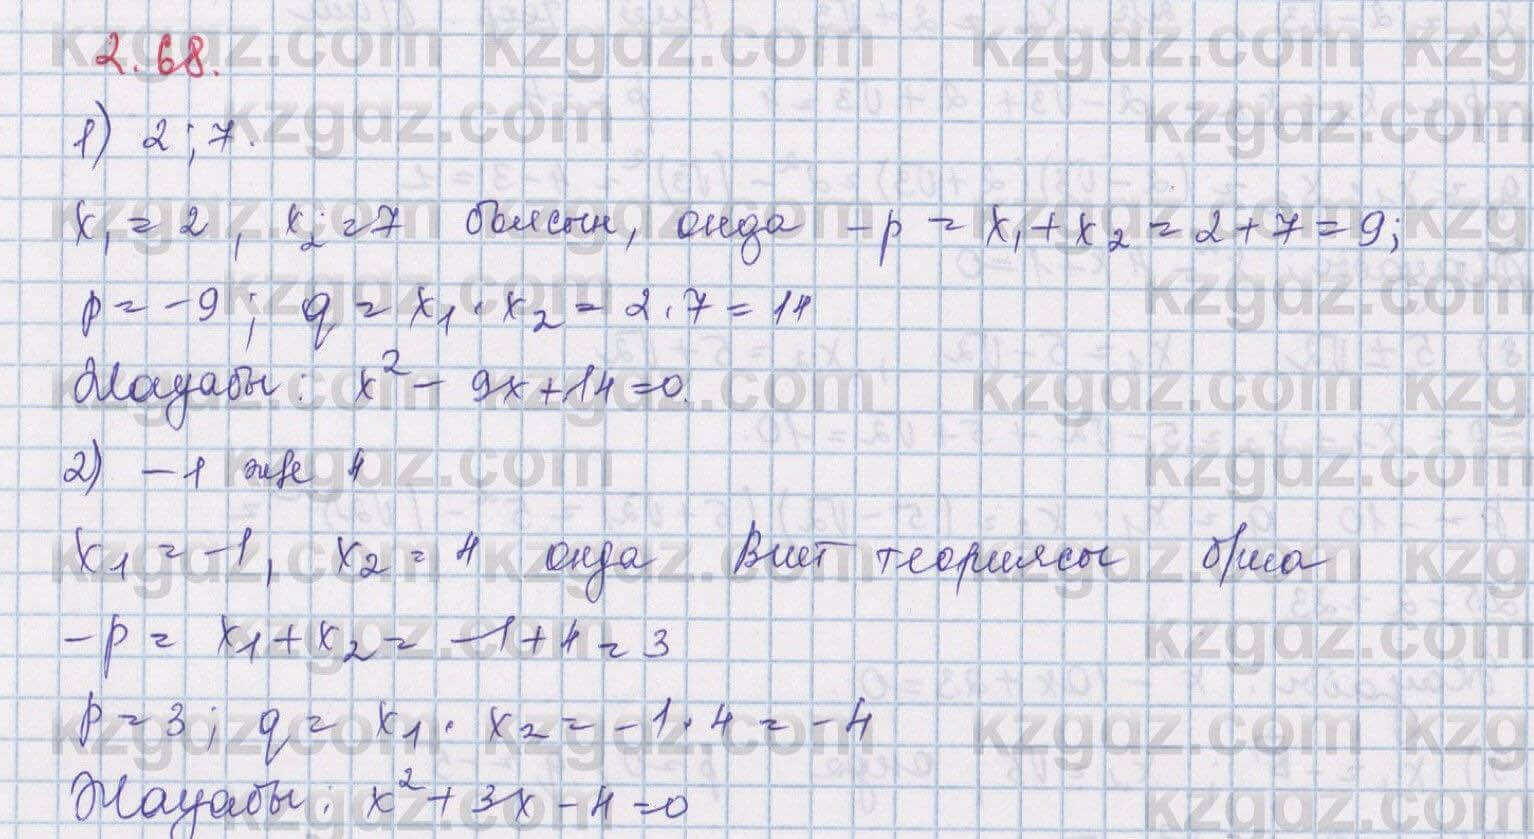 2.68.
1) 2; 7.
x₁ = 2, x₂ = 7 болсын, онда -p = x₁ + x₂ = 2 + 7 = 9;
p = -9; q = x₁ · x₂ = 2 · 7 = 14
Жауабы: x² - 9x + 14 = 0.
2) -1 және 4
x₁ = -1, x₂ = 4 онда Виет теориясы б/ша
-p = x₁ + x₂ = -1 + 4 = 3
p = 3; q = x₁ · x₂ = -1 · 4 = -4
Жауабы: x² + 3x - 4 = 0
kzgdz.com